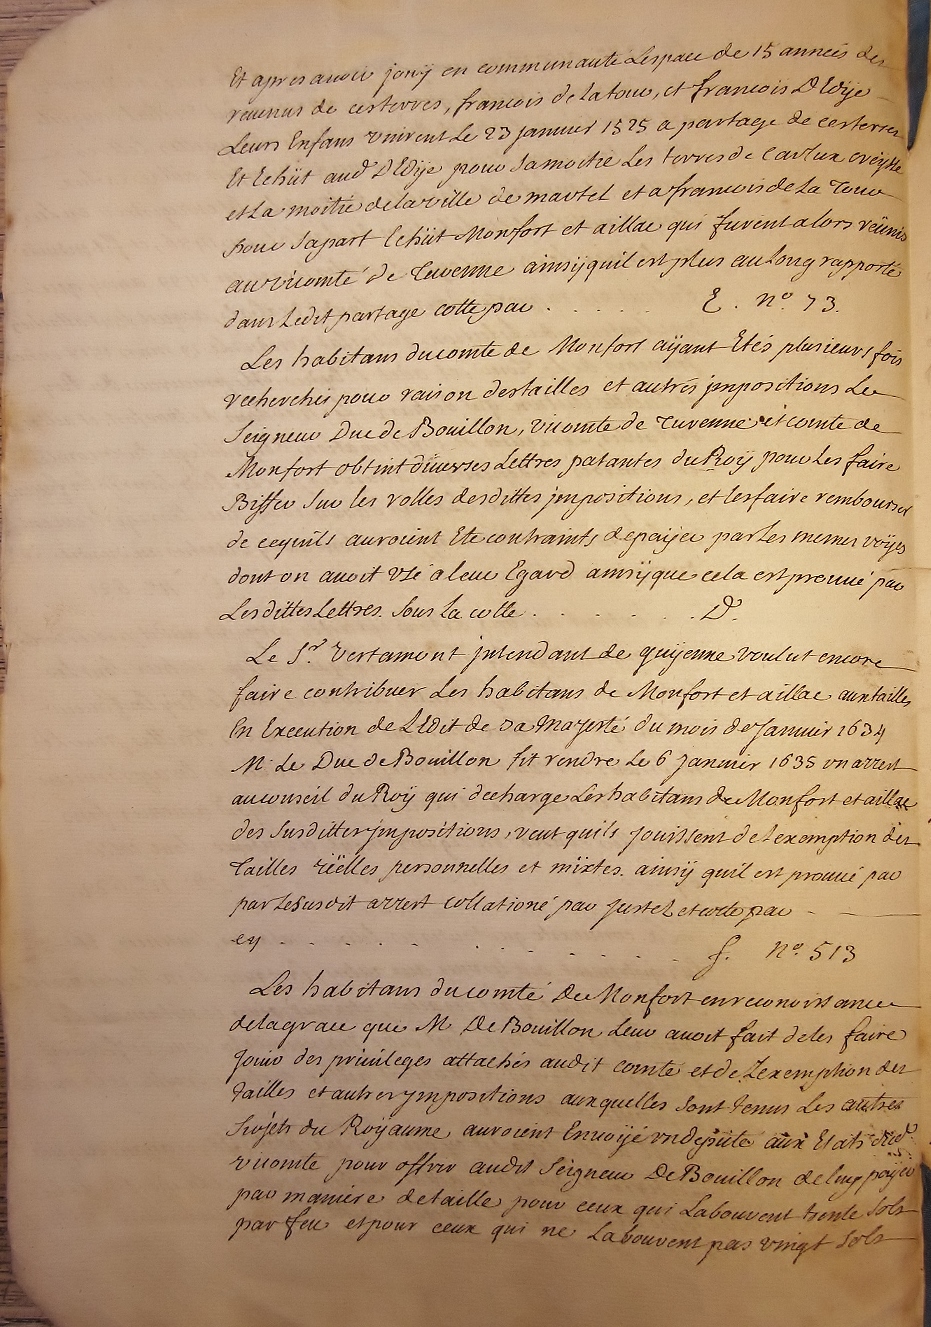 Et apres avoir jouÿ en communauté Lespace de 15 années des
revenus de ces terres, francois de la tour, et francois D'Edÿe
Leurs Enfans vinrent Le 23 janvier 1525 a partage de ces terres
Et Echüt aud. D'Edÿe pour sa moitié Les terres de Carlux creÿsse
et La moitié de la ville de martel et a francois de La Tour
pour sa part Echüt Monfort et aillac qui furent alors réünis
au vicomté de Turenne ainsÿ quil est plus au Long rapporté
dans Ledit partage cotte par . . . . . E. n.º 73.
Les habitans du comté de Monfort aÿant Etés plusieurs fois
recherchés pour raison des tailles et autrés jmpositions Le
Seigneur Duc de Bouillon, vicomte de Turenne et comte de
Monfort obtint diverses Lettres patantes du Roÿ pour Les faire
Biffer sur les rolles desdittes jmpositions, et les faire rembourser
de ce quils auroient Ete contraints de païer par Les memes voÿes
dont on avoit Usé a leur Egard ainsÿ que cela est prouvé par
Lesdittes Lettres. sous La cotte . . . . . . D.
Le S.r Vertamont jntendant de guÿenne voulut encore
faire contribuer Les habitans de Monfort et aillac aux tailles
En Execution de L'Edit de sa Majesté du mois de Janvier 1634
M. Le Duc de Bouillon fit rendre Le 6 janvier 1635 un arrest
au conseil du Roÿ qui decharge Les habitans de Monfort et aillac
des susdittes jmpositions, veut quils jouissent de L'exemption des
Tailles réëlles personnelles et mixtes. ainsÿ quil est prouvé par
par Le susdit arrest collationé par justel et cotte par
cy . . . . . . . . . f. n.º 513
Les habitans du comté De Monfort en reconoissance
de la grace que M. De Bouillon Leur avoit fait de les faire
jouir des privileges attachés audit comté et de L'exemption des
tailles et autres ympositions auxquelles sont tenus Les autres
Sujets du Roÿaume, auroient Envoÿé un deputé aux Etats dud.
vicomté pour offrir audit Seigneur De Bouillon de luy païer
par maniere de taille pour ceux qui Labourent trente sols
par feu et pour ceux qui ne Labourent pas vingt sols